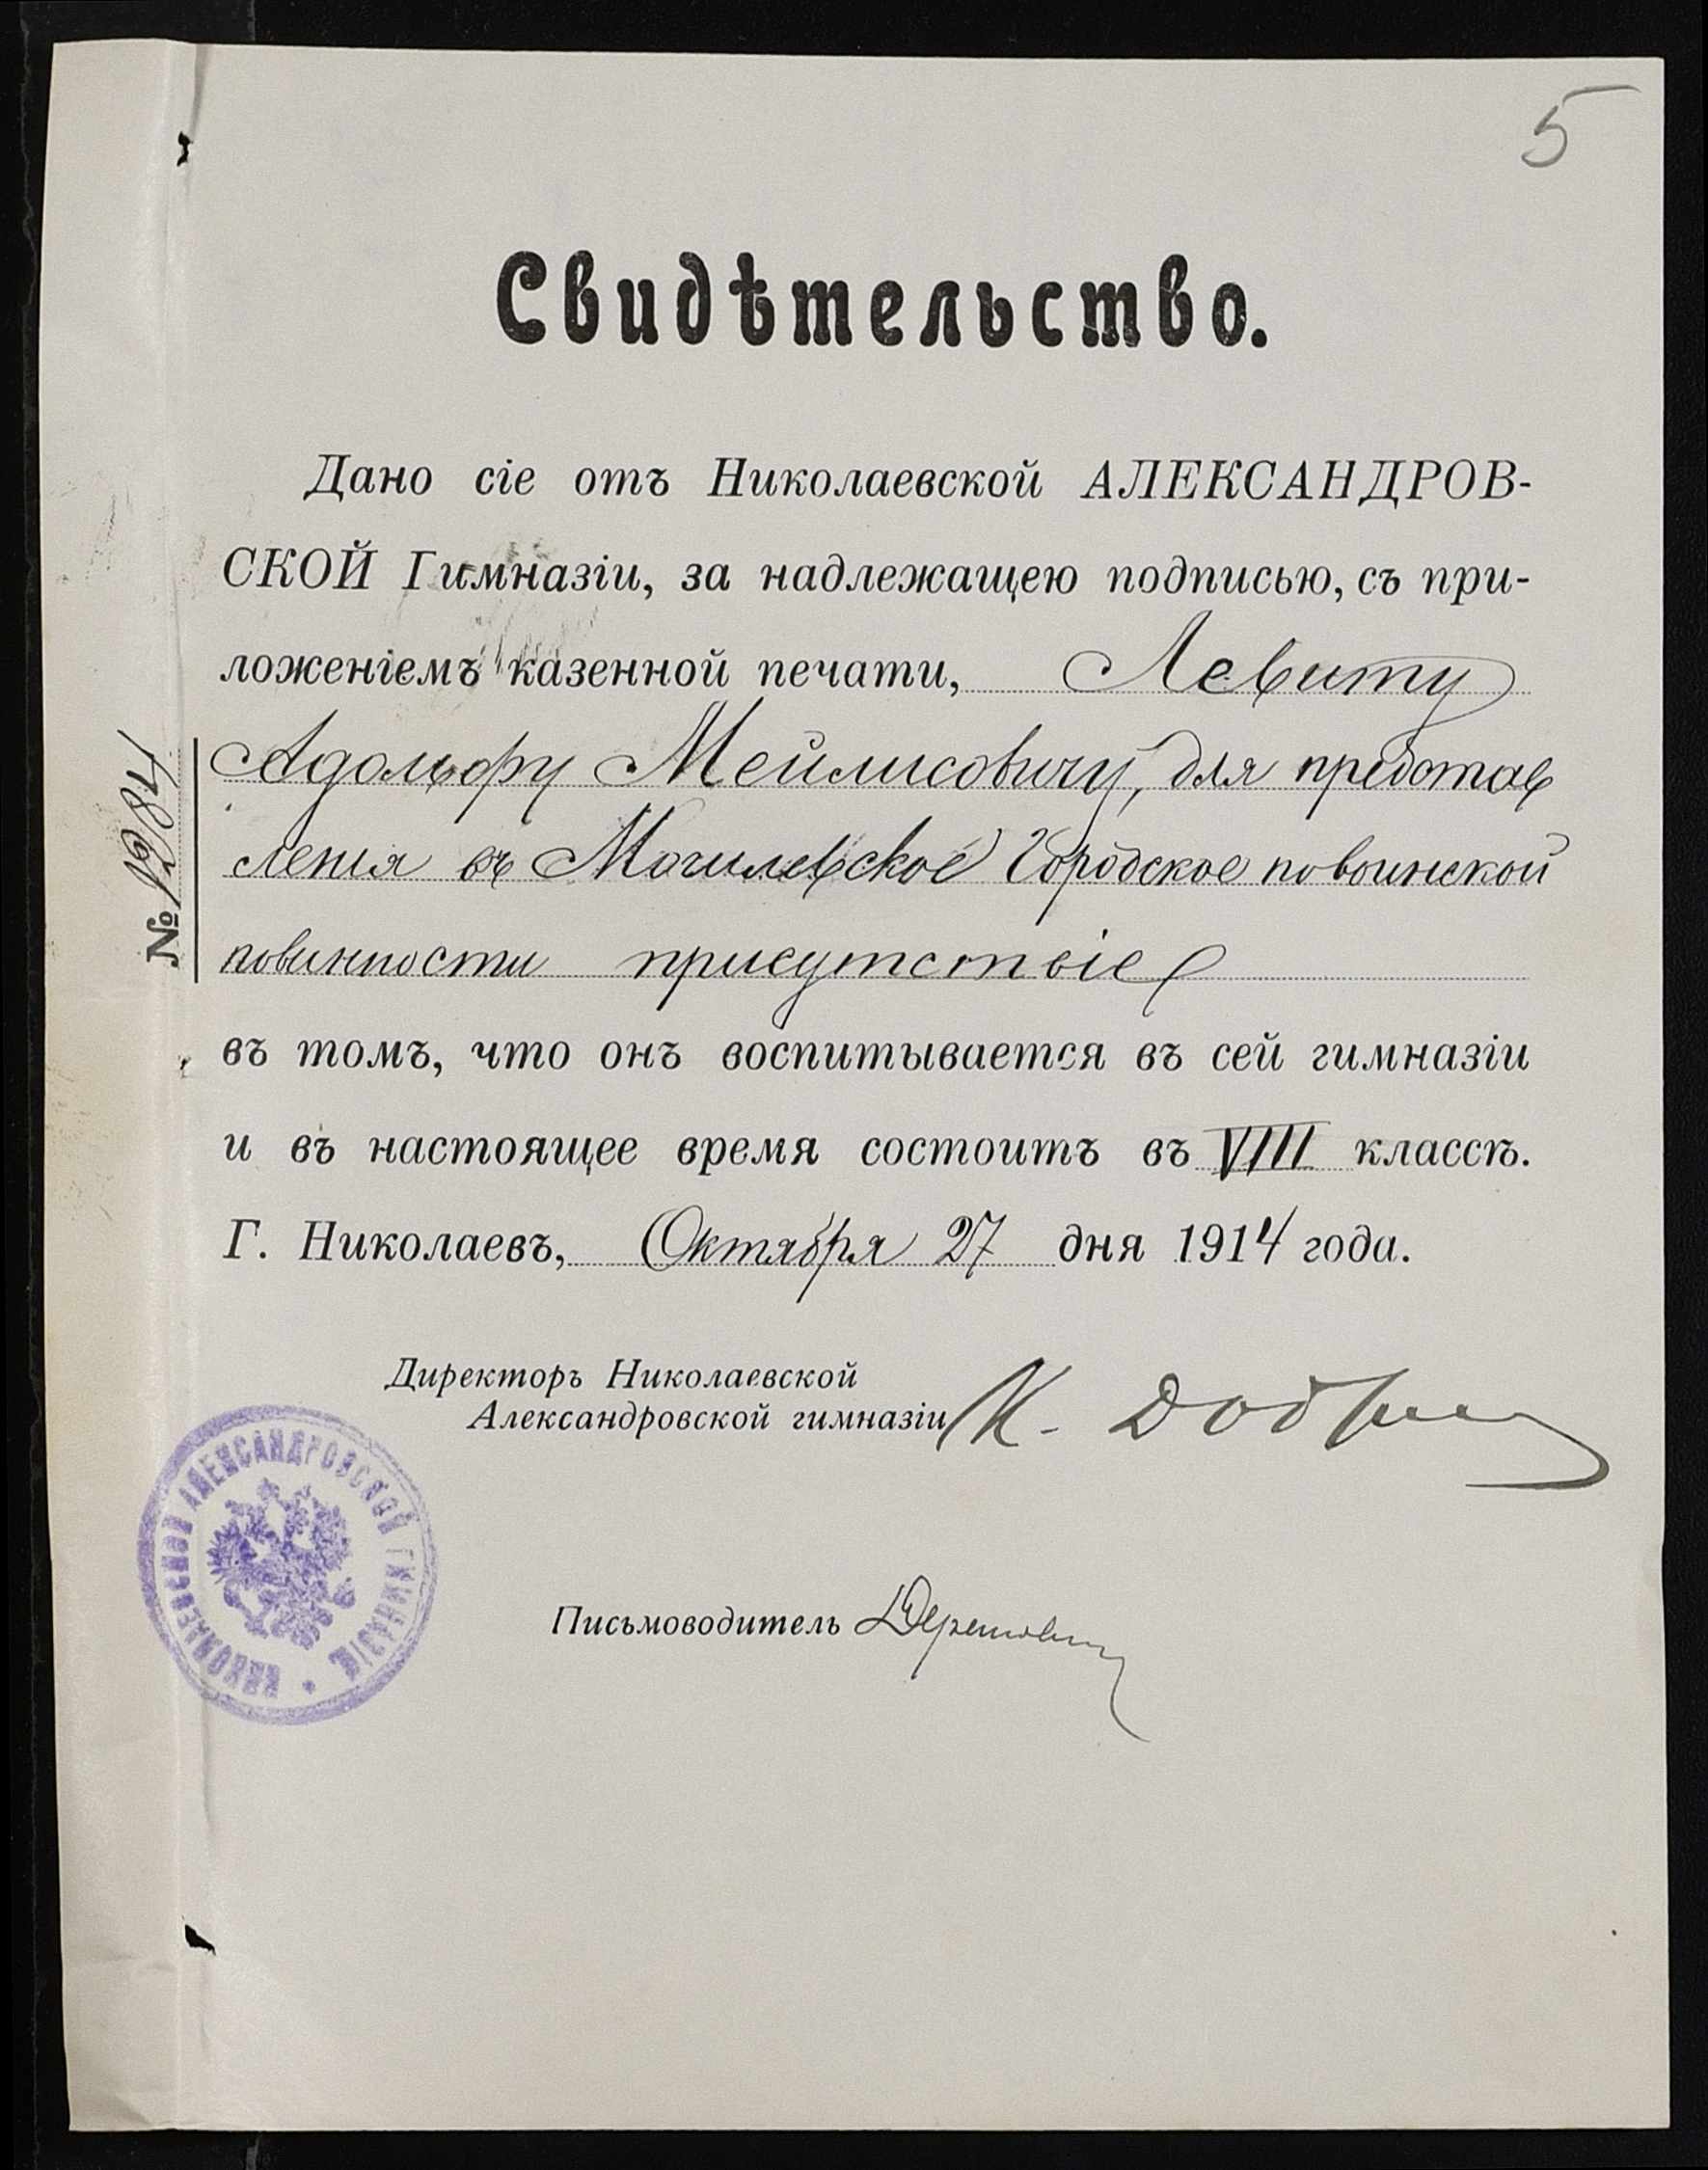 5
Свидѣтельство.
Дано сіе отъ Николаевской АЛЕКСАНДРОВ-
СКОЙ Гимназіи, за надлежащею подписью, съ при-
ложеніемъ казенной печати, Левиту
Адольфу Меилисовичу, для представ
ленія въ Могилевское Городское по воинской
повинности присутствіе
въ томъ, что онъ воспитывается въ сей гимназіи
и въ настоящее время состоитъ въ VIII классѣ.
Г. Николаевъ, Октября 27 дня 1914 года.
№ 1284
Директоръ Николаевской
Александровской гимназіи К.
НИКОЛАЕВСКОЙ АЛЕКСАНДРОВСКОЙ ГИМНАЗІИ
Письмоводитель